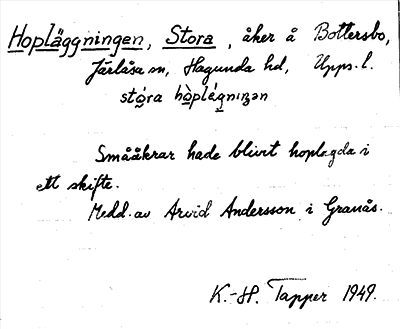 Hopläggningen, Stora, åker å Bottersbo,
Järlåsa sn, Hagunda hd, Upps. l.
stóra hòplégniŋən
Småååkrar hade blivit hoplagda i
ett skifte.
Medd. av Arvid Andersson i Granås.
K.-H. Tapper 1949.